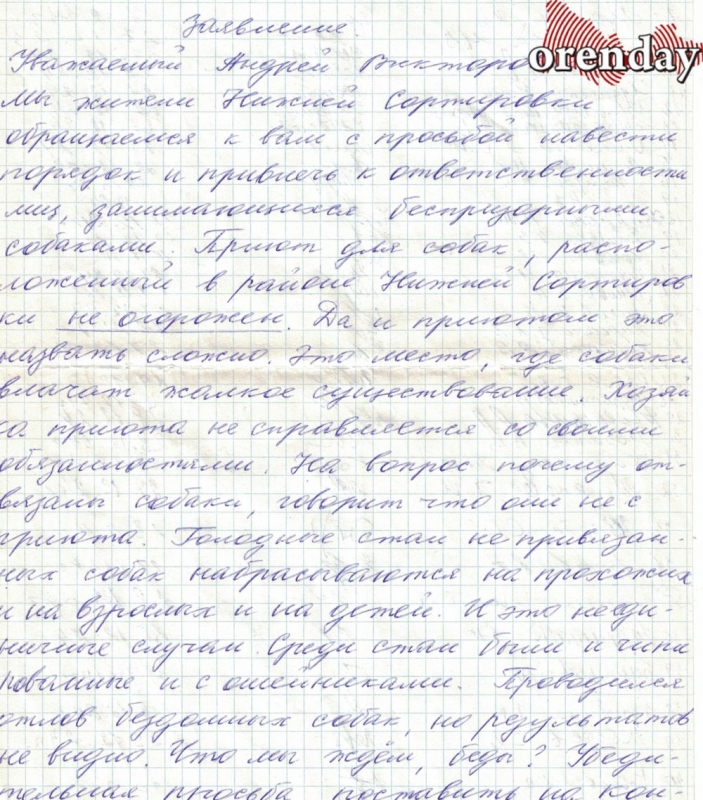 Заявление.
orenday
Уважаемый Андрей Викторо
Мы жители Нижней Сортировки
обращаемся к вам с просьбой навести
порядок и привлечь к ответственности
лиц, занимающихся беспризорными
собаками. Приют для собак, распо-
ложенный в районе Нижней Сортиров
ки не огорожен. Да и приютом это
назвать сложно. Это место, где собаки
влачат жалкое существование. Хозяй
ка приюта не справляется со своими
обязанностями. На вопрос почему от-
вязаны собаки, говорит что они не с
приюта. Голодные стаи не привязан-
ных собак набрасываются на прохожих
и на взрослых и на детей. И это не еди-
ничные случаи. Среди стаи были и чипи
рованные и с ошейниками. Проводился
отлов бездомных собак, но результатов
не видно. Что мы ждём, беды? Убеди-
тельная просьба поставить на кон-